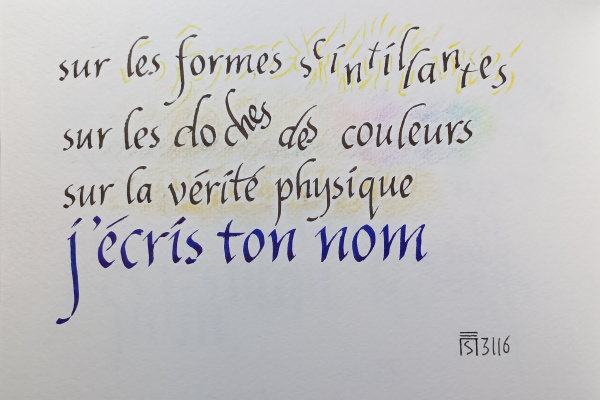 sur les formes scintillantes
sur les cloches des couleurs
sur la vérité physique
j'écris ton nom
3116